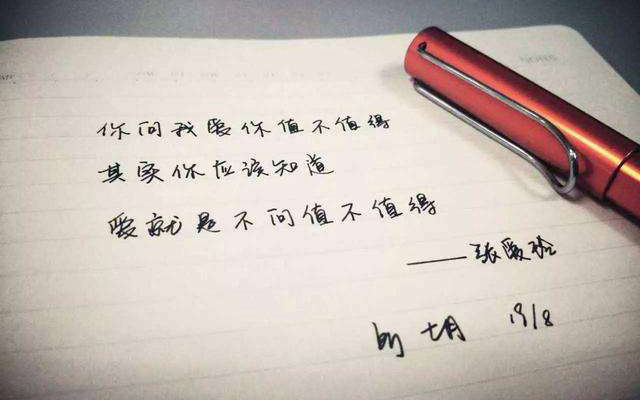 你问我爱你值不值得
其实你应该知道
爱就是不问值不值得
——张爱玲
by 七月 19/8